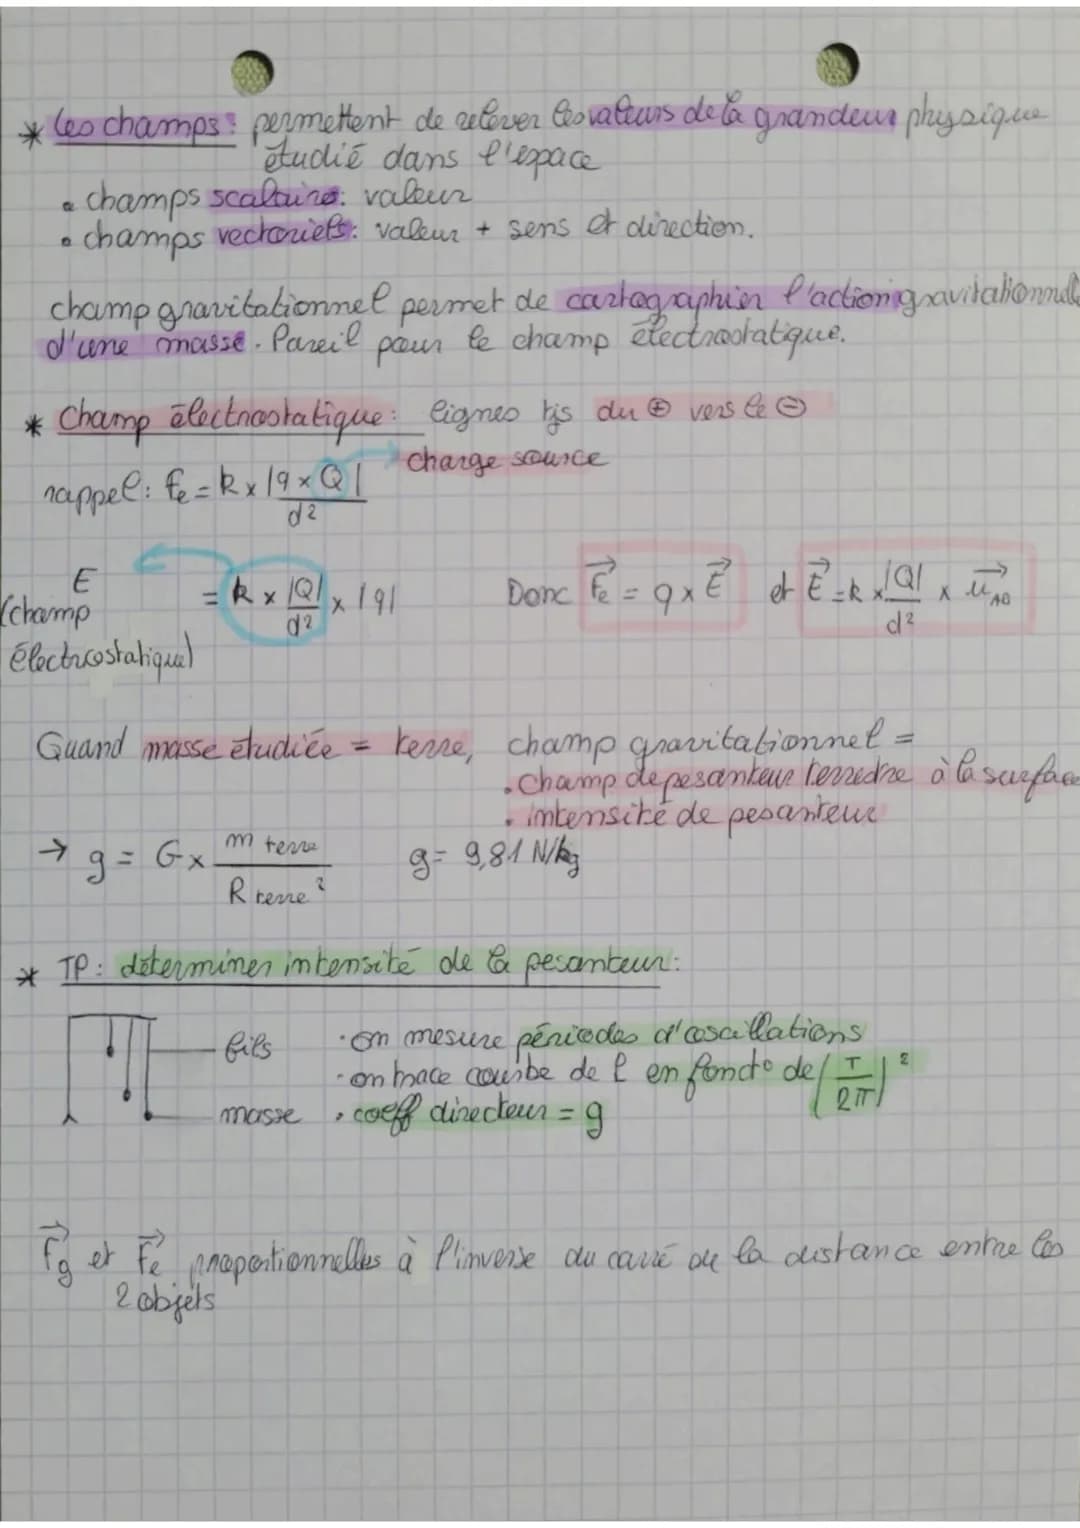 * Les champs : permettent de relever les valeurs de la grandeur physique
étudié dans l'espace
• champs scalaires : valeur
• champs vectoriels : valeur + sens et direction.
champ gravitationnel permet de cartographier l'action gravitationnelle
d'une masse. Pareil pour le champ électrostatique.
* Champ électrostatique : lignes tjs du ⊕ vers le ⊖
charge source
rappel : Fe = k x |q x Q| / d²
E = k x |Q| / d² x |q| Donc Fe→ = q x E→ et E→ = k x |Q| / d² x u→AB
(champ
électrostatique)
Quand masse étudiée = terre, champ gravitationnel =
• Champ de pesanteur terrestre à la surface
• intensité de pesanteur
→ g = G x m terre / R terre² g = 9,81 N/kg
* TP : déterminer intensité de la pesanteur :
fils • on mesure périodes d'oscillations
• on trace courbe de l en fonct° de (T / 2π)²
masse • coeff directeur = g
Fg→ et Fe→ proportionnelles à l'inverse du carré de la distance entre les
2 objets